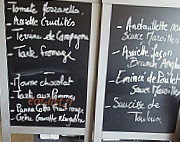 Tomate Mozzarella
- Assiette Crudités
- Terrine de Campagne
- Tarte fromage
- Mousse chocolat
- Tarte aux Pommes
- Panna Cotta Fruit rouge
- Crème
- Andouillette
Sauce Maroilles
- Assiette Façon
- Emincé de Poulet
Sauce
- Saucisse de
Toulouse